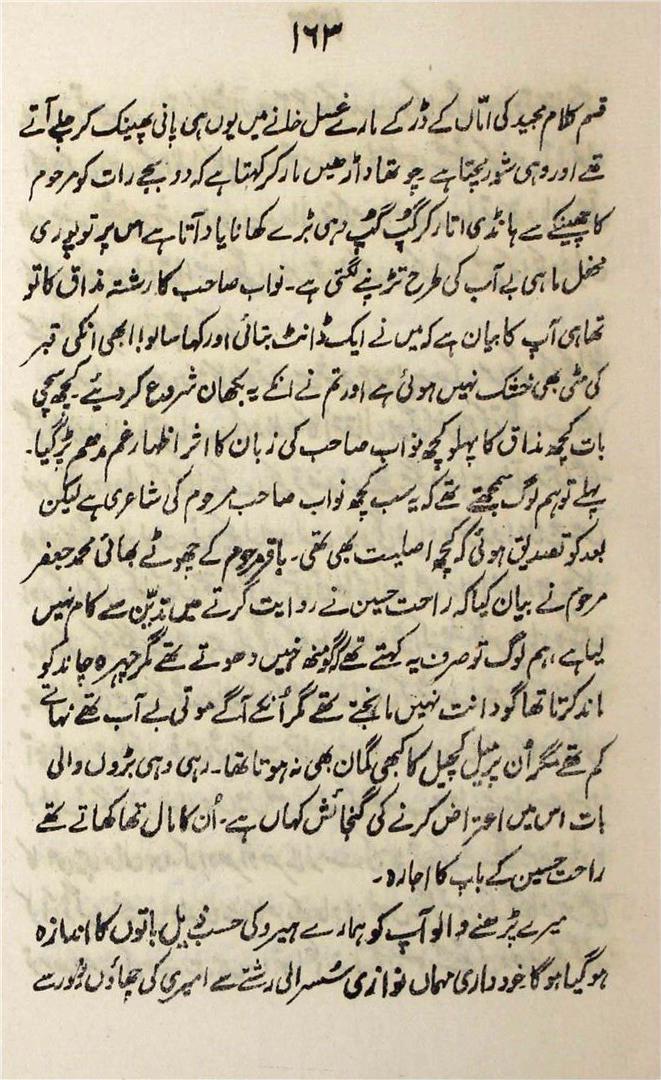 ۱۶۳
قسم کلام مجید کی اماّں کے ڈر کے مارے غسل خانے میں یوں ہی پانی پھینک کر چلے آتے
تھے اور وہی شور مچتا ہے چوتھا ڈاڑھیں مار کر کہتا ہے کہ دو بجے رات کو مرحوم
کا چھینکے سے ہانڈی اتار کر گپ گپ دہی بڑے کھانا یاد آتا ہے اس پر تو پوری
محفل ماہی بے آب کی طرح تڑپنے لگتی ہے۔ نواب صاحب کا رشتہ مذاق کا تو
تھا ہی آپ کا بیان ہے کہ میں نے ایک ڈانٹ بتائی اور کہا سالو! ابھی انکی قبر
کی مٹی بھی خشک نہیں ہوئی ہے اور تم نے انکے یہ بکھان شروع کر دیئے۔ کچھ سچی
بات کچھ مذاق کا پہلو کچھ نواب صاحب کی زبان کا اثر اظہار غم مدھم پڑ گیا۔
پہلے تو ہم لوگ سمجھتے تھے کہ یہ سب کچھ نواب صاحب مرحوم کی شاعری ہے لیکن
بعد کو تصدیق ہوئی کہ کچھ اصلیت بھی تھی۔ باقر مرحوم کے چھوٹے بھائی محمد جعفر
مرحوم نے بیان کیا کہ راحت حسین نے روایت کرتے میں تدیّن سے کام نہیں
لیا ہے، ہم لوگ تو صرف یہ کہتے تھے کہ گو منھ نہیں دھوتے تھے مگر چہرہ چاند کو
ماند کرتا تھا گو دانت نہیں مانجتے تھے مگر اُنکے آگے موتی بے آب تھے نہاتے
کم تھے مگر اُن پر میل کچیل کا کبھی گمان بھی نہ ہوتا تھا۔ رہی دہی بڑوں والی
بات اس میں اعتراض کرنے کی گنجائش کہاں ہے۔ اُن کا مال تھا کھاتے تھے
راحت حسین کے باپ کا اجارہ۔
میرے پڑھنے والو آپ کو ہمارے ہیرو کی حسب ذیل باتوں کا اندازہ
ہو گیا ہوگا خودداری مہماں نوازی سُسرالی رشتے سے امیری کی چھاؤں